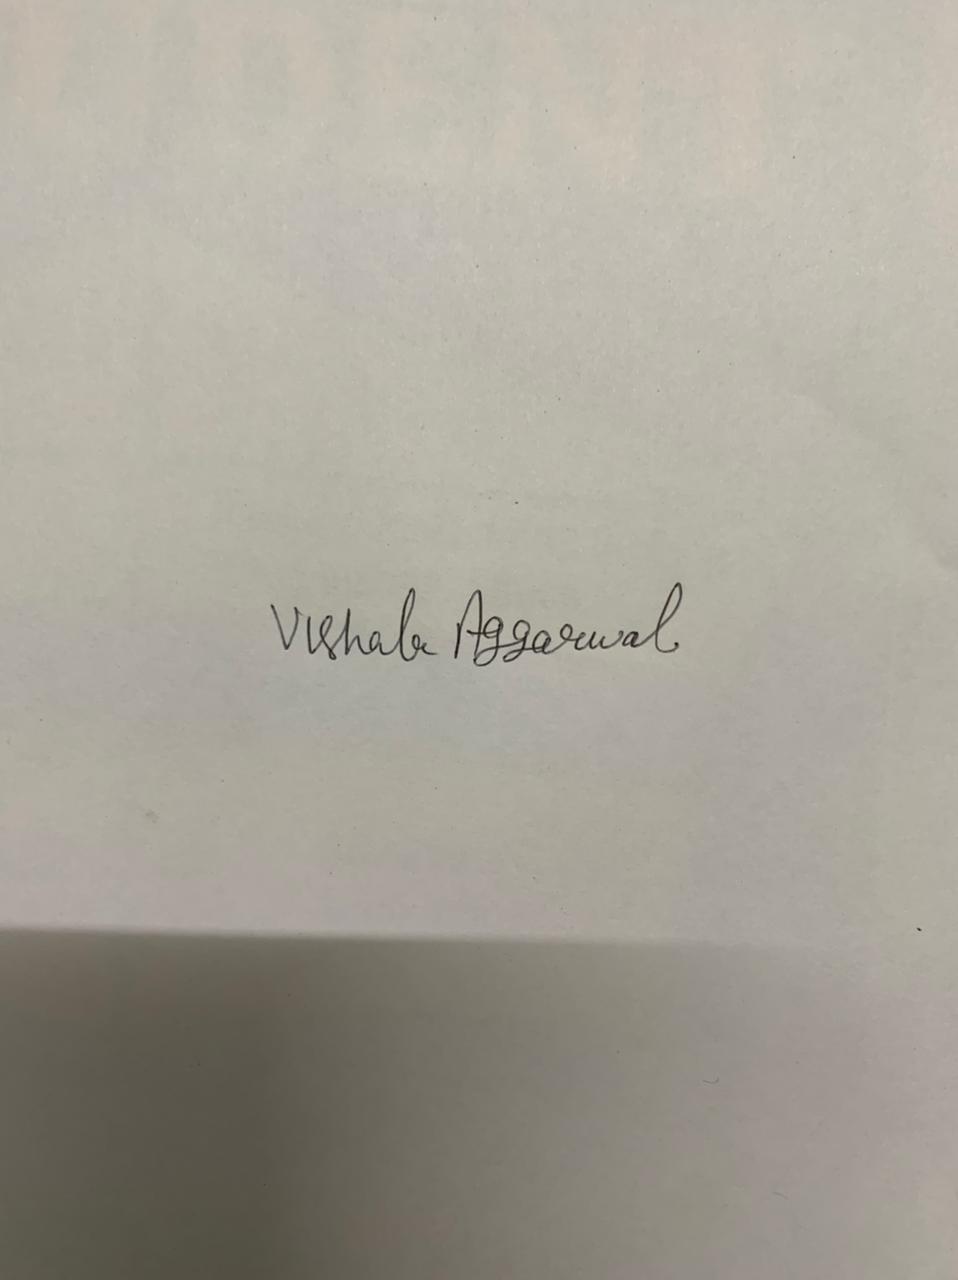 Vishala Aggarwal